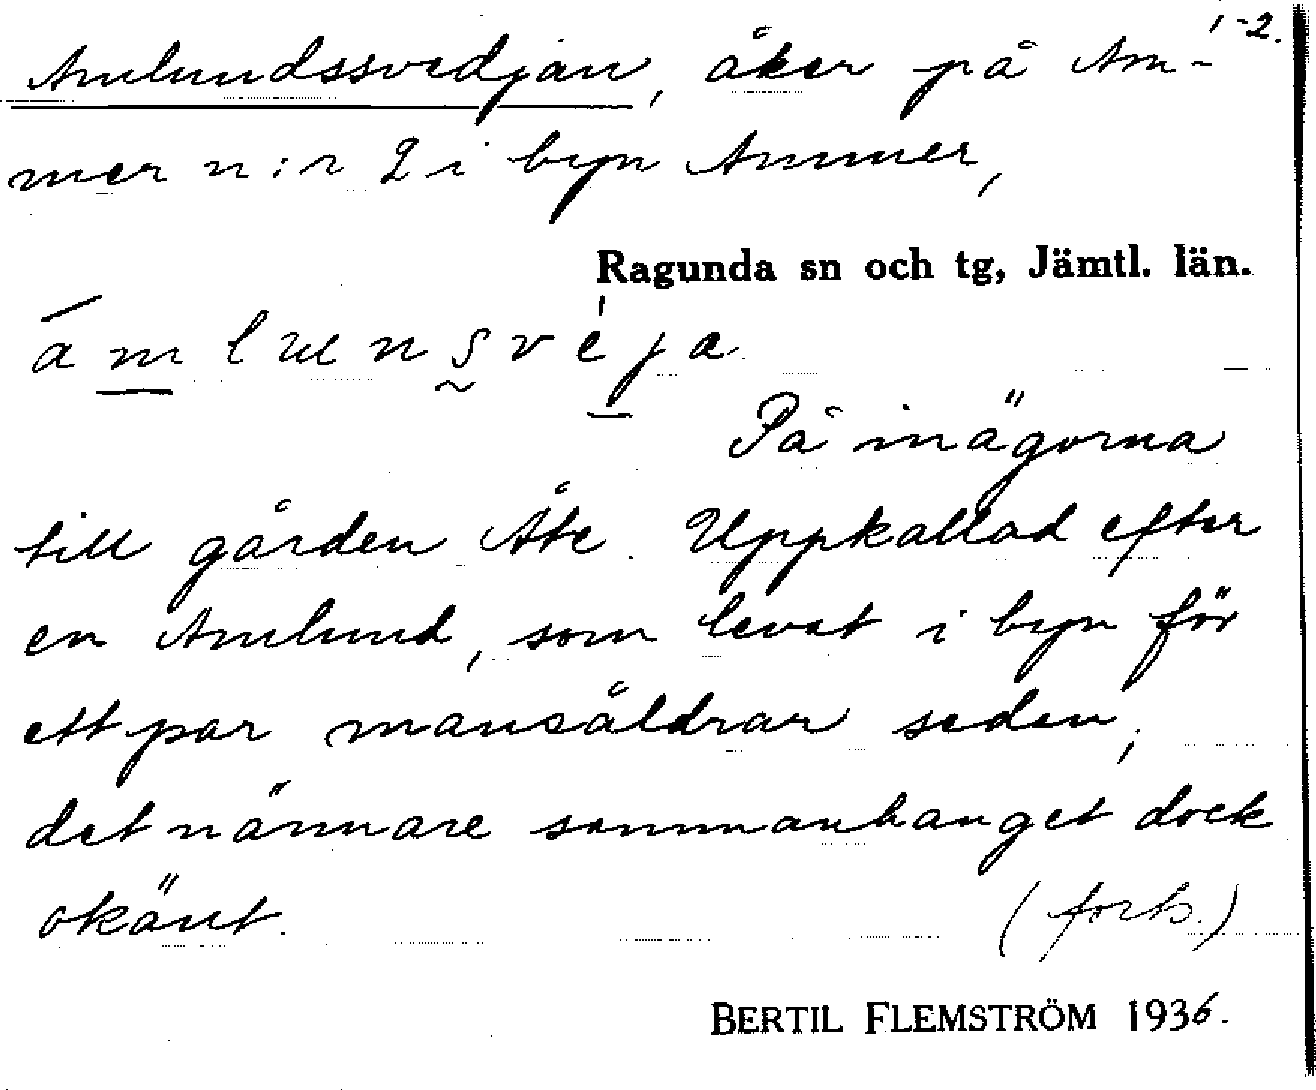 1-2.
Amlundssvedjan, åker på Am-
mer n:r 2 i byn Ammer,
Ragunda sn och tg, Jämtl. län.
ámlunsvéja
På inägorna
till gården Åte. Uppkallad efter
en Amlund, som levat i byn för
ett par mansåldrar sedan,
det närmare sammanhanget dock
okänt. (forts.)
BERTIL FLEMSTRÖM 1936.